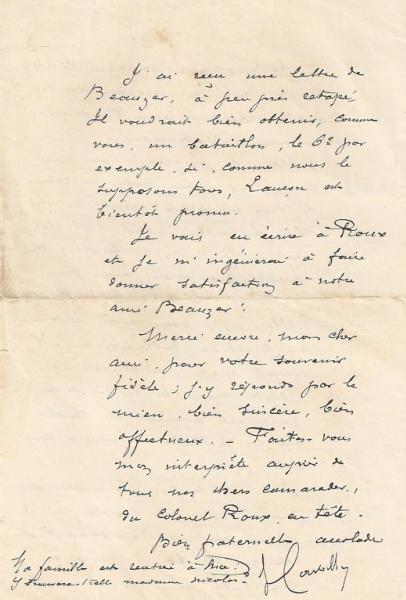 J'ai reçu une lettre de
Beauzer, à peu près retapé.
Il voudrait bien obtenir, comme
vous, un bataillon, le 6e par
exemple, si, comme nous le
supposons tous, Lançon est
bientôt promu.
Je vais en écrire à Roux
et je m'ingénierai à faire
donner satisfaction à notre
ami Beauzer.
Merci encore, mon cher
ami, pour votre souvenir
fidèle ; j'y réponds par le
mien, bien sincère, bien
affectueux. — Faites-vous
mon interprète auprès de
tous nos chers camarades,
du Colonel Roux en tête.
Bien fraternelle accolade
Ma famille est rentrée à
Y trouvera-t-elle madame Nicolas ?